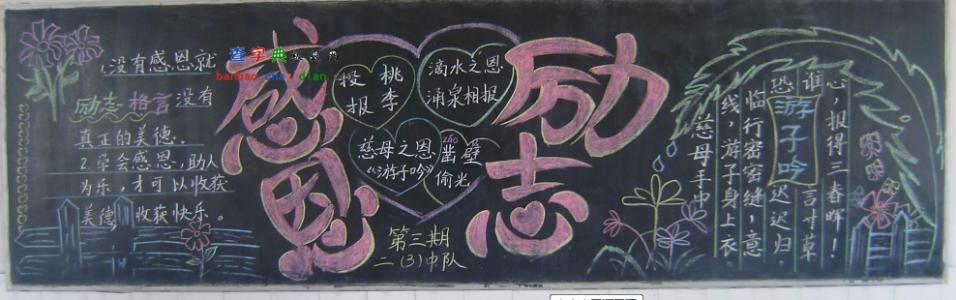 1.没有感恩就
励志格言 没有
真正的美德。
2.学会感恩,助人
为乐,才可以收获
美德,收获快乐。
查字典
感恩
励志
投桃
报李
滴水之恩
涌泉相报
慈母之恩
《游子吟》
záo
凿壁
偷光
第三期
二(3)中队
游子吟
慈母手中
线,游子身上衣
临行密密缝,意
恐迟迟归。
谁言寸草
心,报得三春晖!